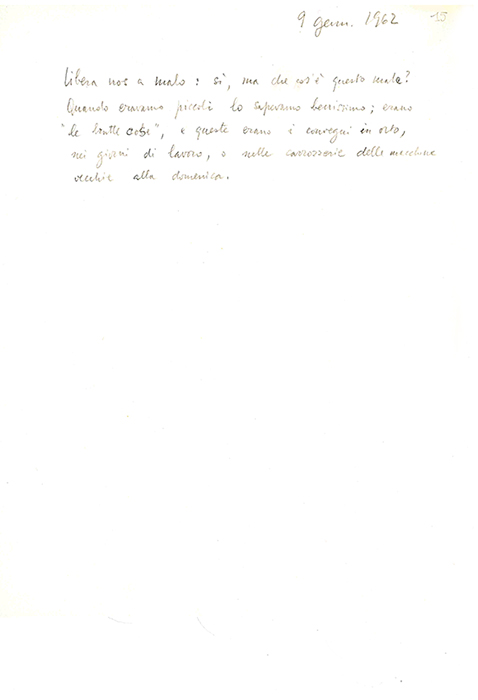 9 genn. 1962 15
Libera nos a malo : sì, ma che cos'è questo male?
Quando eravamo piccoli lo sapevamo benissimo; erano
"le brutte cose", e queste erano i convegni in orto,
nei giorni di lavoro, o nelle carrozzerie delle macchine
vecchie alla domenica.